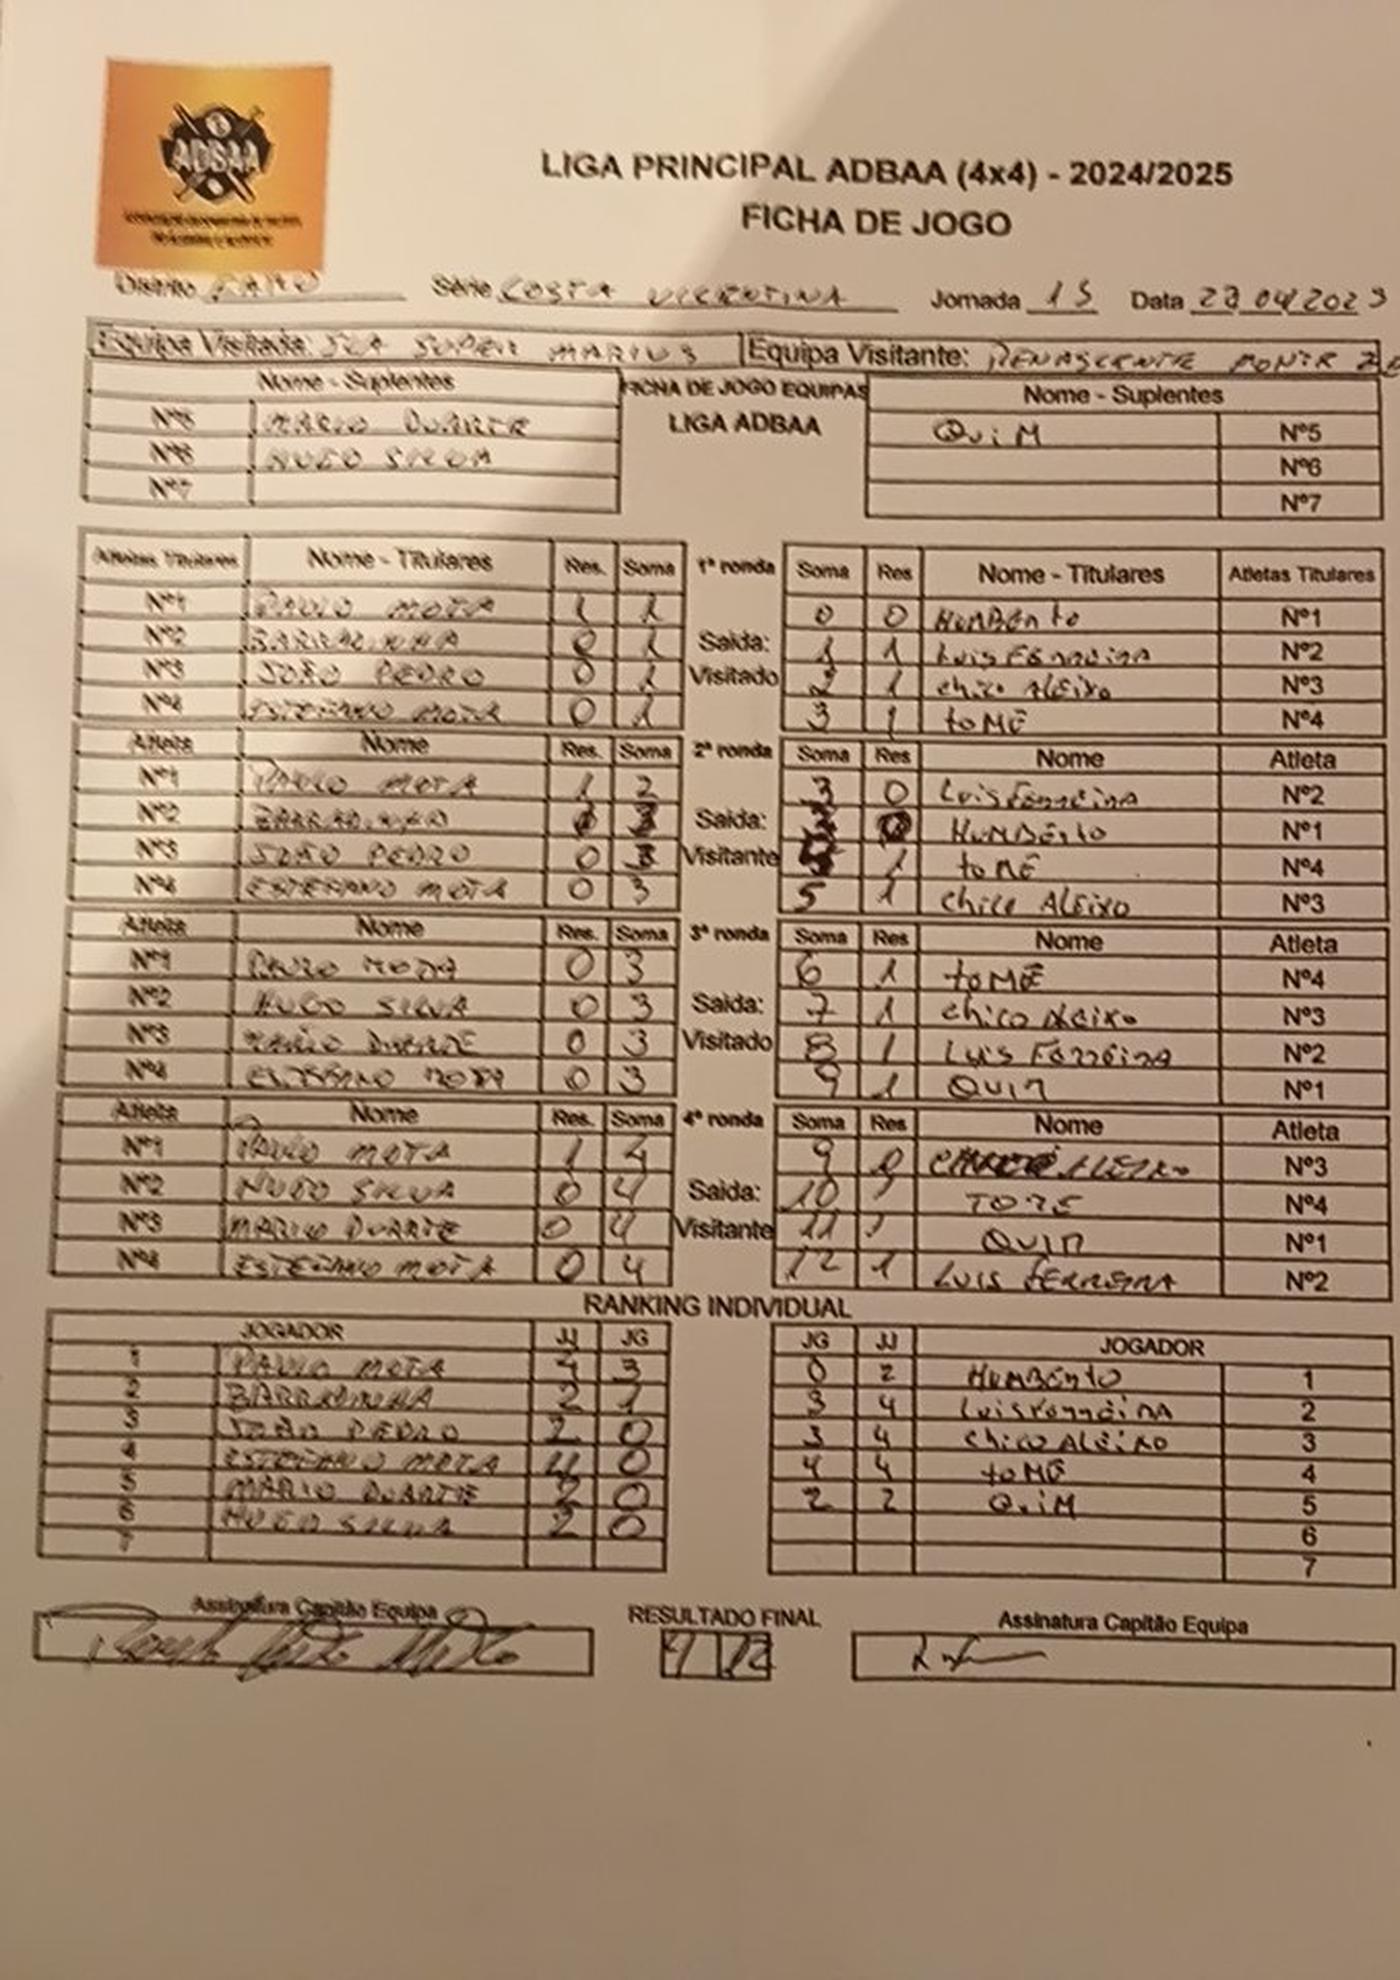 ADBAA
LIGA PRINCIPAL ADBAA (4x4) - 2024/2025
FICHA DE JOGO
Distrito Série COSTA VICENTINA Jornada 15 Data
Equipa Visitada: SUPER MARIUS Equipa Visitante: RENASCENTE
Nome - Suplentes FICHA DE JOGO EQUIPAS Nome - Suplentes
Nº5 MARIO DUARTE LIGA ADBAA QUiM Nº5
Nº6 HUGO SILVA Nº6
Nº7 Nº7
Atletas Titulares Nome - Titulares Res. Soma 1ª ronda Soma Res Nome - Titulares Atletas Titulares
Nº1 PAULO MOTA 1 1 0 0 HUMBErto Nº1
Nº2 BARRADINHA 0 1 Saida: 1 1 Luis FErrEirA Nº2
Nº3 JOÃO PEDRO 0 1 Visitado 2 1 chico ALEixo Nº3
Nº4 ESTEFANO MOTA 0 1 3 1 toMÉ Nº4
Atleta Nome Res. Soma 2ª ronda Soma Res Nome Atleta
Nº1 PAULO MOTA 1 2 3 0 Luis FErrEirA Nº2
Nº2 Saida: HUMBErto Nº1
Nº3 JOÃO PEDRO 0 3 Visitante 1 toMÉ Nº4
Nº4 ESTEFANO MOTA 0 3 5 1 chico ALEixo Nº3
Atleta Nome Res. Soma 3ª ronda Soma Res Nome Atleta
Nº1 PAULO MOTA 0 3 6 1 toMÉ Nº4
Nº2 HUGO SILVA 0 3 Saida: 7 1 chico ALEixo Nº3
Nº3 MARIO DUARTE 0 3 Visitado 8 1 Luis FErrEirA Nº2
Nº4 ESTEFANO MOTA 0 3 9 1 QUIM Nº1
Atleta Nome Res. Soma 4ª ronda Soma Res Nome Atleta
Nº1 PAULO MOTA 1 4 9 0 ALEIXO Nº3
Nº2 HUGO SILVA 0 4 Saida: 10 1 TOMÉ Nº4
Nº3 MARIO DUARTE 0 4 Visitante 11 1 QUIM Nº1
Nº4 ESTEFANO MOTA 0 4 12 1 LUIS FERREIRA Nº2
RANKING INDIVIDUAL
JOGADOR JJ JG JG JJ JOGADOR
1 PAULO MOTA 4 3 0 2 HUMBErto 1
2 BARRADINHA 2 1 3 4 Luis FErrEirA 2
3 JOÃO PEDRO 2 0 3 4 chico ALEixo 3
4 ESTEFANO MOTA 4 0 4 4 toMÉ 4
5 MARIO DUARTE 2 0 2 2 QUiM 5
6 HUGO SILVA 2 0 6
7 7
Assinatura Capitão Equipa RESULTADO FINAL Assinatura Capitão Equipa
4 12